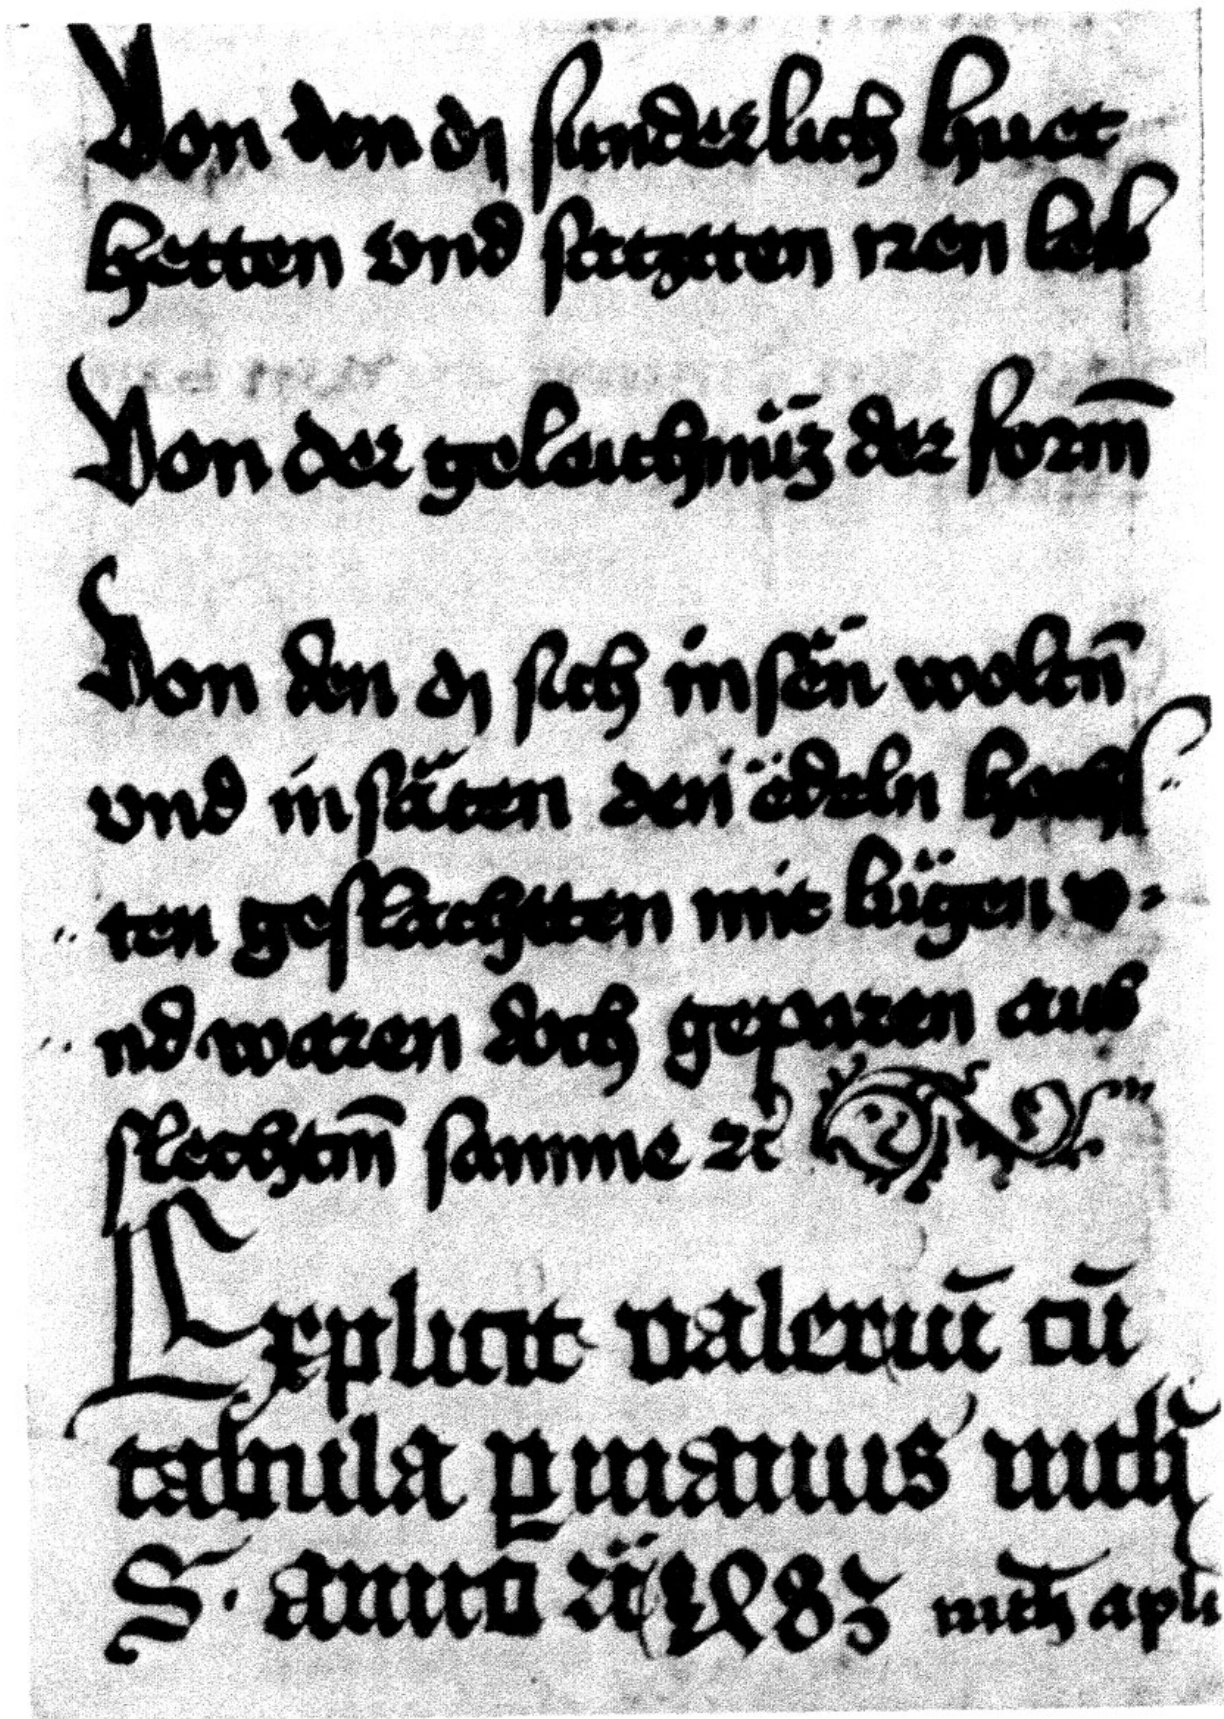 Von den di sunderlich huet
hetten vnd satztten iren leib
Von der geleichnüz der form̄
Von den di sich in sän woltn̄
vnd in säten den ëdeln hochſ
ten geslachtten mit lügen v-
nd waren doch geparen aus
slechtm̄ samme ꝛc
Explicit valeriū cū
tabula ꝑ manus
S. anno ꝛc